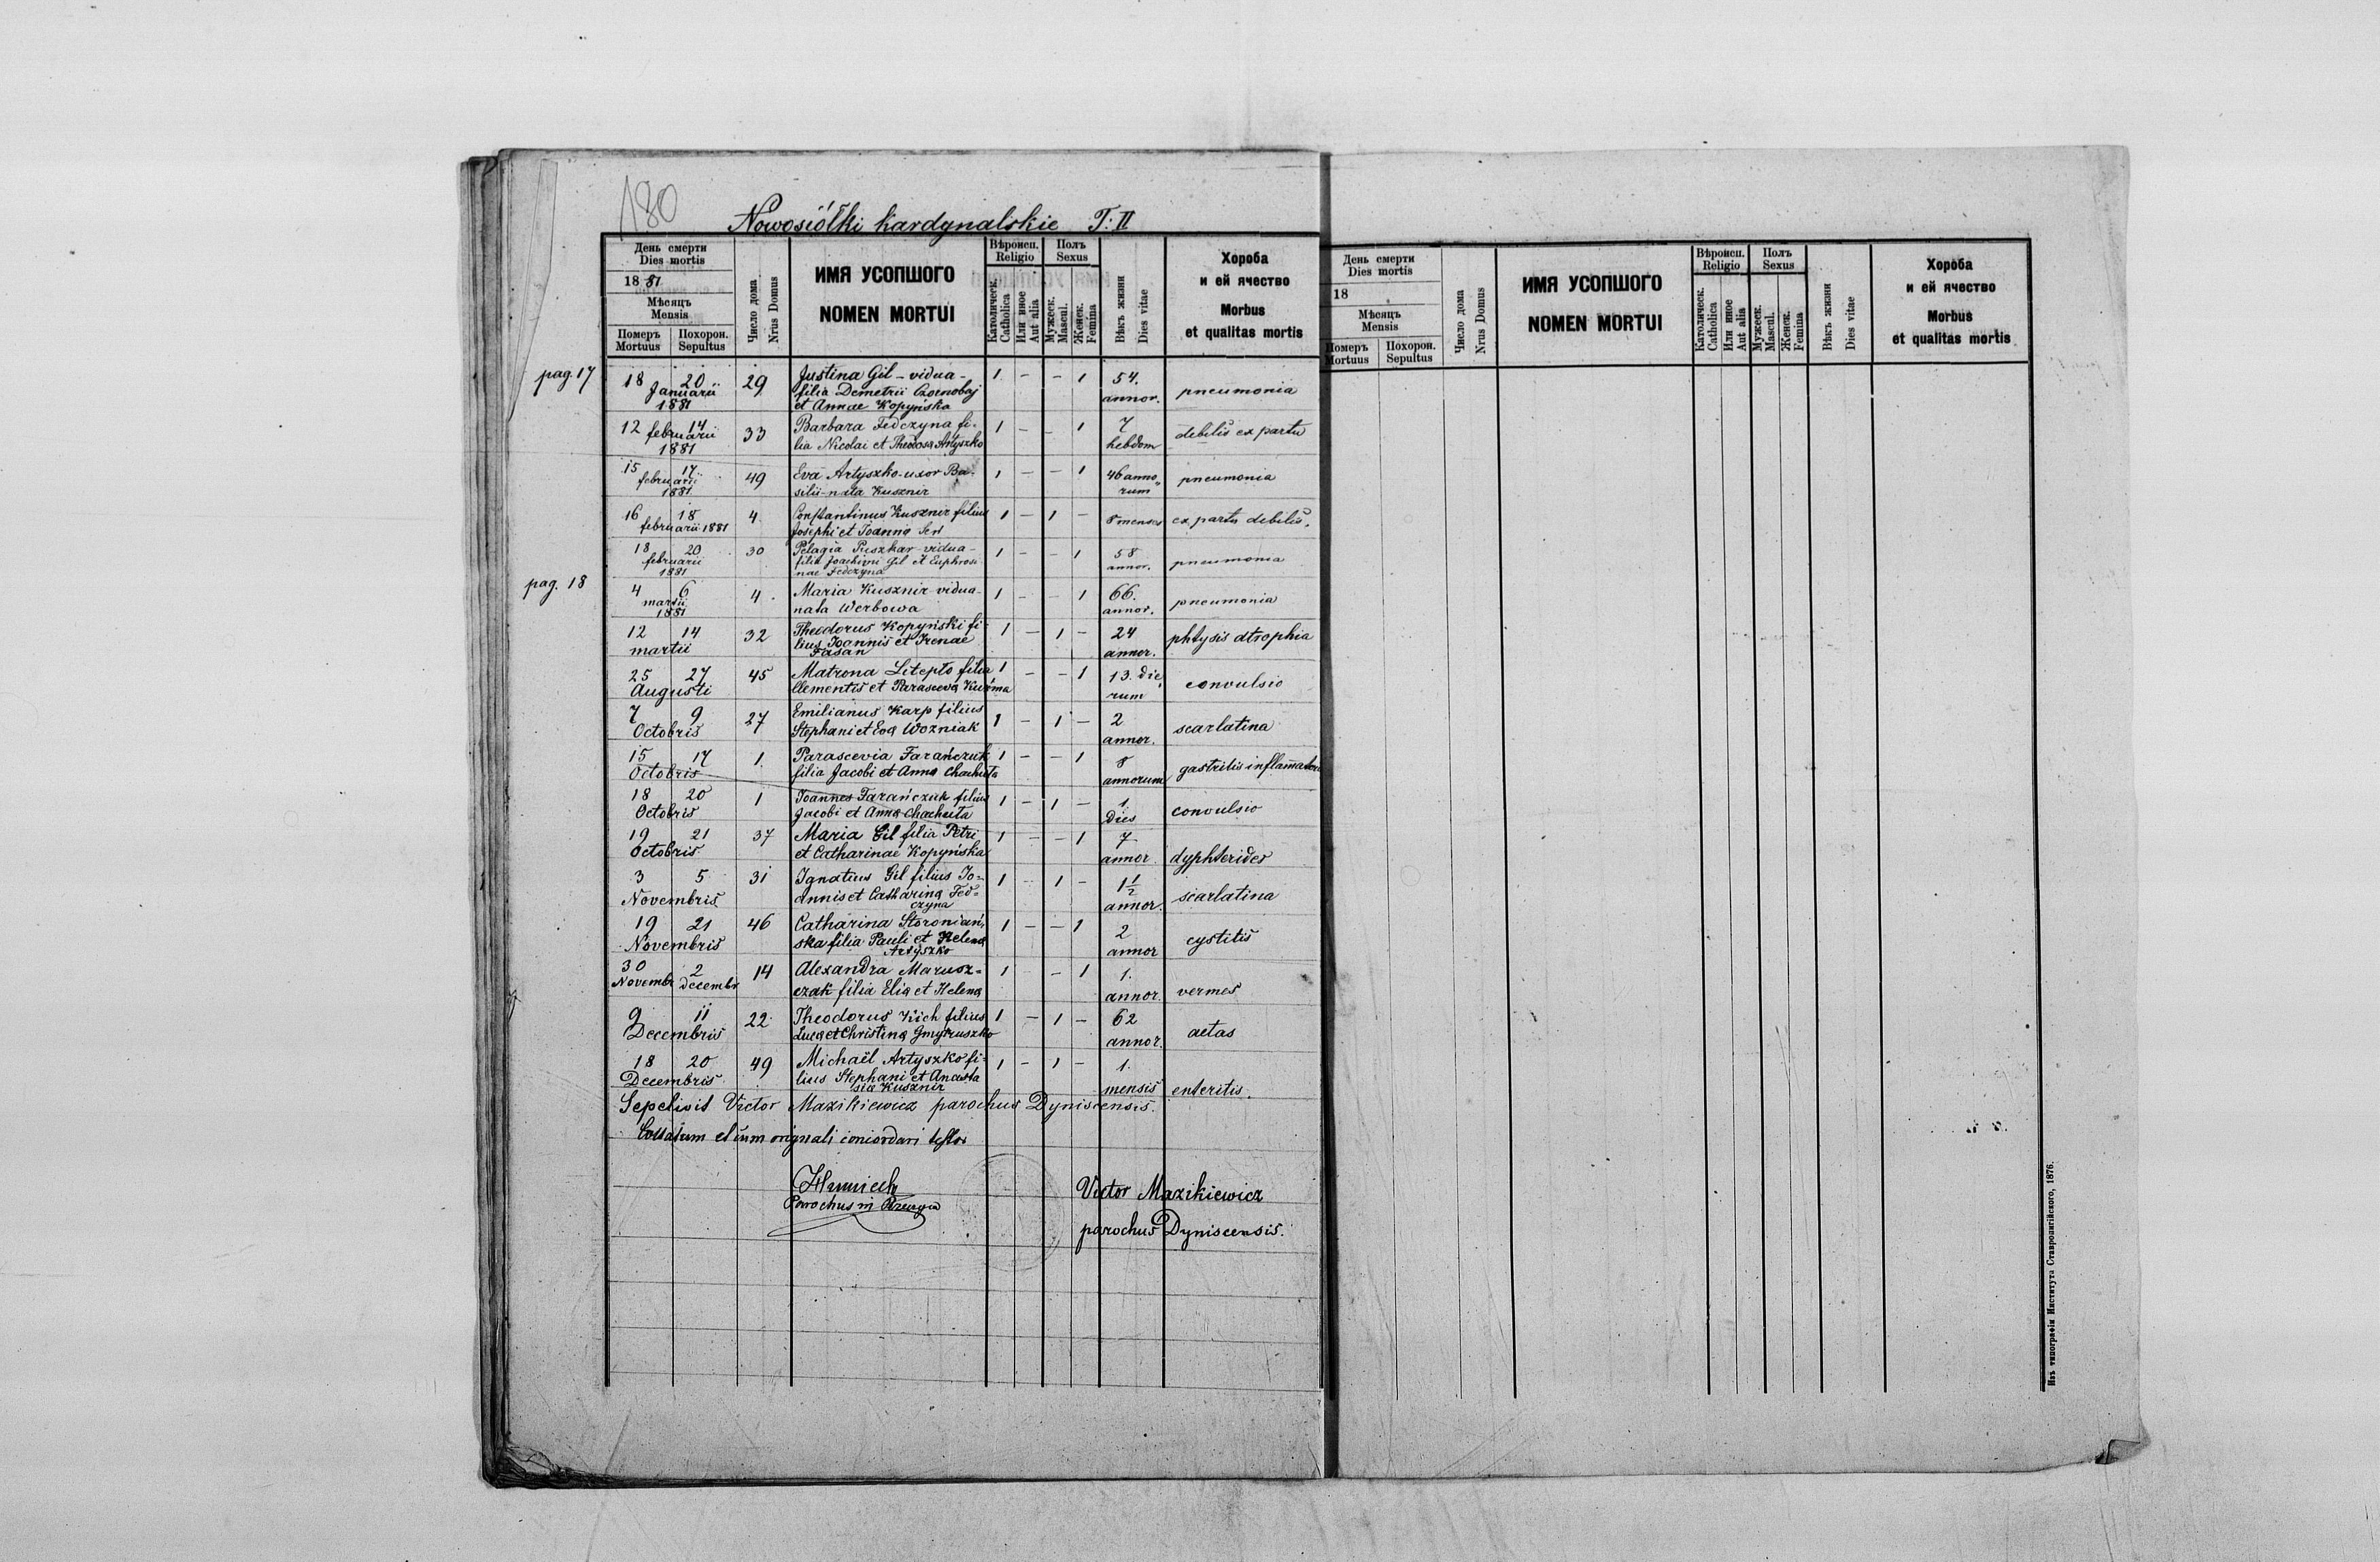 180
Nowosiółki kardynalskie T: II
День смерти
Dies mortis
18 81
Мѣсяць
Mensis
Померъ
Mortuus
Похорон.
Sepultus
Число дома
Nrus Domus
ИМЯ УСОПШОГО
NOMEN MORTUI
Вѣроисп.
Religio
Католическ.
Catholica
Или иное
Aut alia
Полъ
Sexus
Мужеск.
Mascul.
Женск.
Femina
Вѣкъ жизни
Dies vitae
Хороба
и ей ячество
Morbus
et qualitas mortis
pag. 17
18 20 29 Justina Gil - vidua - 1 - - 1 54.
Januarii filia Demetrii Czornobaj annor. pneumonia
1881 et Annae Kopyńska
12 14 33 Barbara Fedczyna fi- 1 - - 1 7
februarii lia Nicolai et Theodosa Artyszko hebdom debilis ex partu
1881
15 17 49 Eva Artyszko - uxor Ba- 1 - - 1 46 anno
februarii silii - nata Kusznir rum pneumonia
1881
16 18 4 Constantinus Kusznir filius 1 - 1 - 8 menses ex partu debilis.
februarii 1881 Josephi et Joanna
18 20 30 Pelagia Puszkar - vidua - 1 - - 1 58
februarii filia Joachimi Gil et Euphrosi annor. pneumonia
1881 nae Fedczyna
pag. 18
4 6 4. Maria Kusznir vidua - 1 - - 1 66.
martii nata Werbowa annor. pneumonia
1881
12 14 32 Theodorus Kopyński fi- 1 - 1 - 24 phtysis atrophia
martii lius Joannis et Irenae annor.
Fasan
25 27 45 Matrona Litepło filia 1 - - 1 13. die
Augusti Clementis et Parasceva Kuźma rum convulsio
7 9 27 Emilianus Karp filius 1 - 1 - 2
Octobris Stephani et Eva Wozniak annor. scarlatina
15 17 1. Parascevia Farańczuk 1 - - 1 8
Octobris filia Jacobi et Anna Chachuta annorum gastritis inflam̄atoria
18 20 1 Joannes Farańczuk filius 1 - 1 - 1.
Octobris Jacobi et Anna Chachuta Dies convulsio
19 21 37 Maria Gil filia Petri 1 - - 1 7
Octobris et Catharinae Kopyńska annor dyphterides
3 5 31 Ignatius Gil filius Jo- 1 - 1 - 1½
Novembris annis et Catharina Fed= annor. scarlatina
czyna
19 21 46 Catharina Storoniań- 1 - - 1 2
Novembris ska filia Pauli et Helena annor cystitis
Artyszko
30 2 14 Alexandra Marusz= 1 - 1 1.
Novembr decembr czak filia Elia et Helena annor. vermes
9 11 22 Theodorus Kich filius 1 - 1 - 62
Decembris Luca et Christina Gmytruszko annor. aetas
18 20 49 Michaël Artyszko fi- 1 - 1 - 1.
Decembris lius Stephani et Anasta mensis enteritis.
sia Kusznir
Sepelivit Victor Mazikiewicz parochus Dyniscensis.
Collatum et cum originali concordari testor
Parochus in
Victor Mazikiewicz
parochus Dyniscensis.
День смерти
Dies mortis
18
Мѣсяць
Mensis
Померъ
Mortuus
Похорон.
Sepultus
Число дома
Nrus Domus
ИМЯ УСОПШОГО
NOMEN MORTUI
Вѣроисп.
Religio
Католическ.
Catholica
Или иное
Aut alia
Полъ
Sexus
Мужеск.
Mascul.
Женск.
Femina
Вѣкъ жизни
Dies vitae
Хороба
и ей ячество
Morbus
et qualitas mortis
Изъ типографіи Института Ставропигійского, 1876.